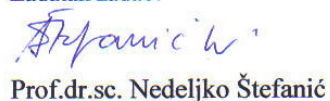 Štefanić N.
Prof.dr.sc. Nedeljko Štefanić